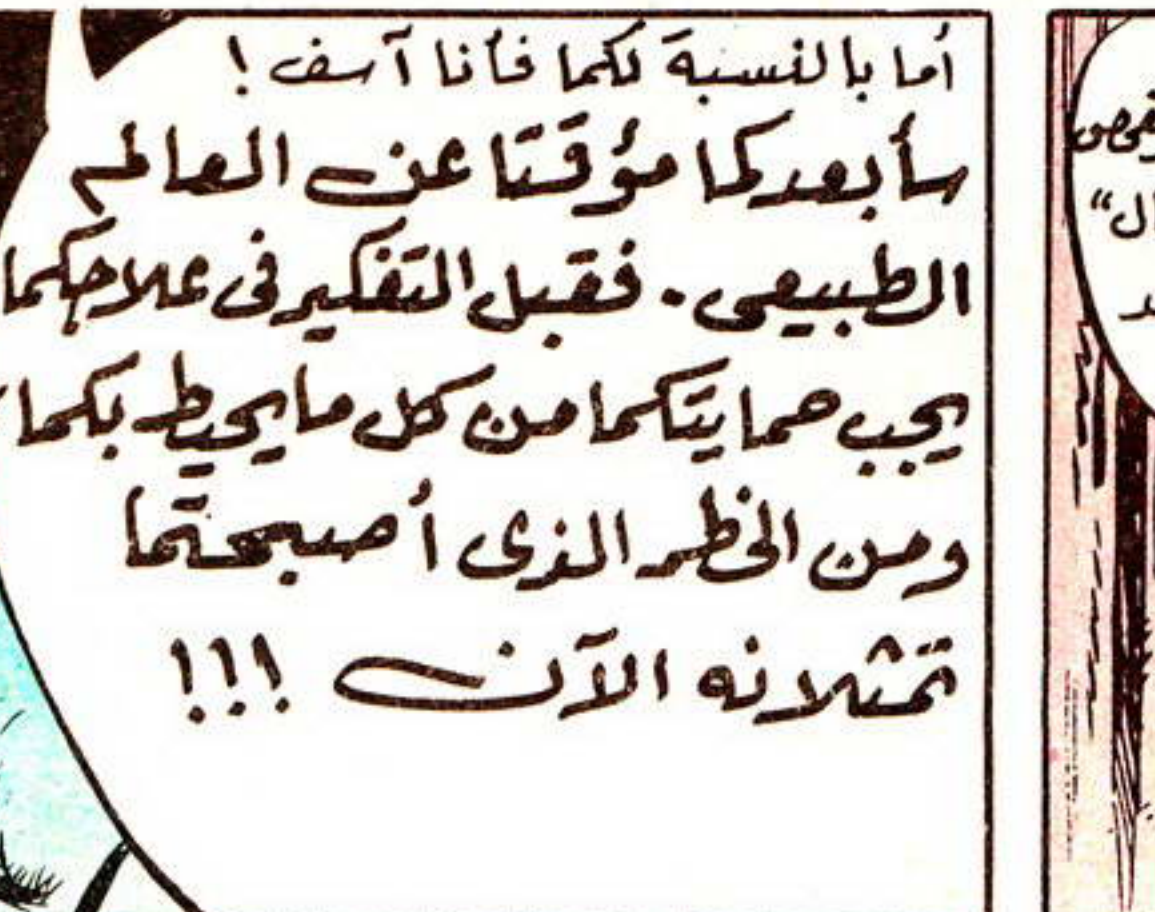 أما بالنسبة لكما فأنا آسف !
سأبعدكما مؤقتا عن العالم
الطبيعى . فقبل التفكير فى علاجكما
يجب حمايتكما من كل ما يحيط بكما
ومن الخطر الذى أصبحتما
تمثلانه الآن !!!